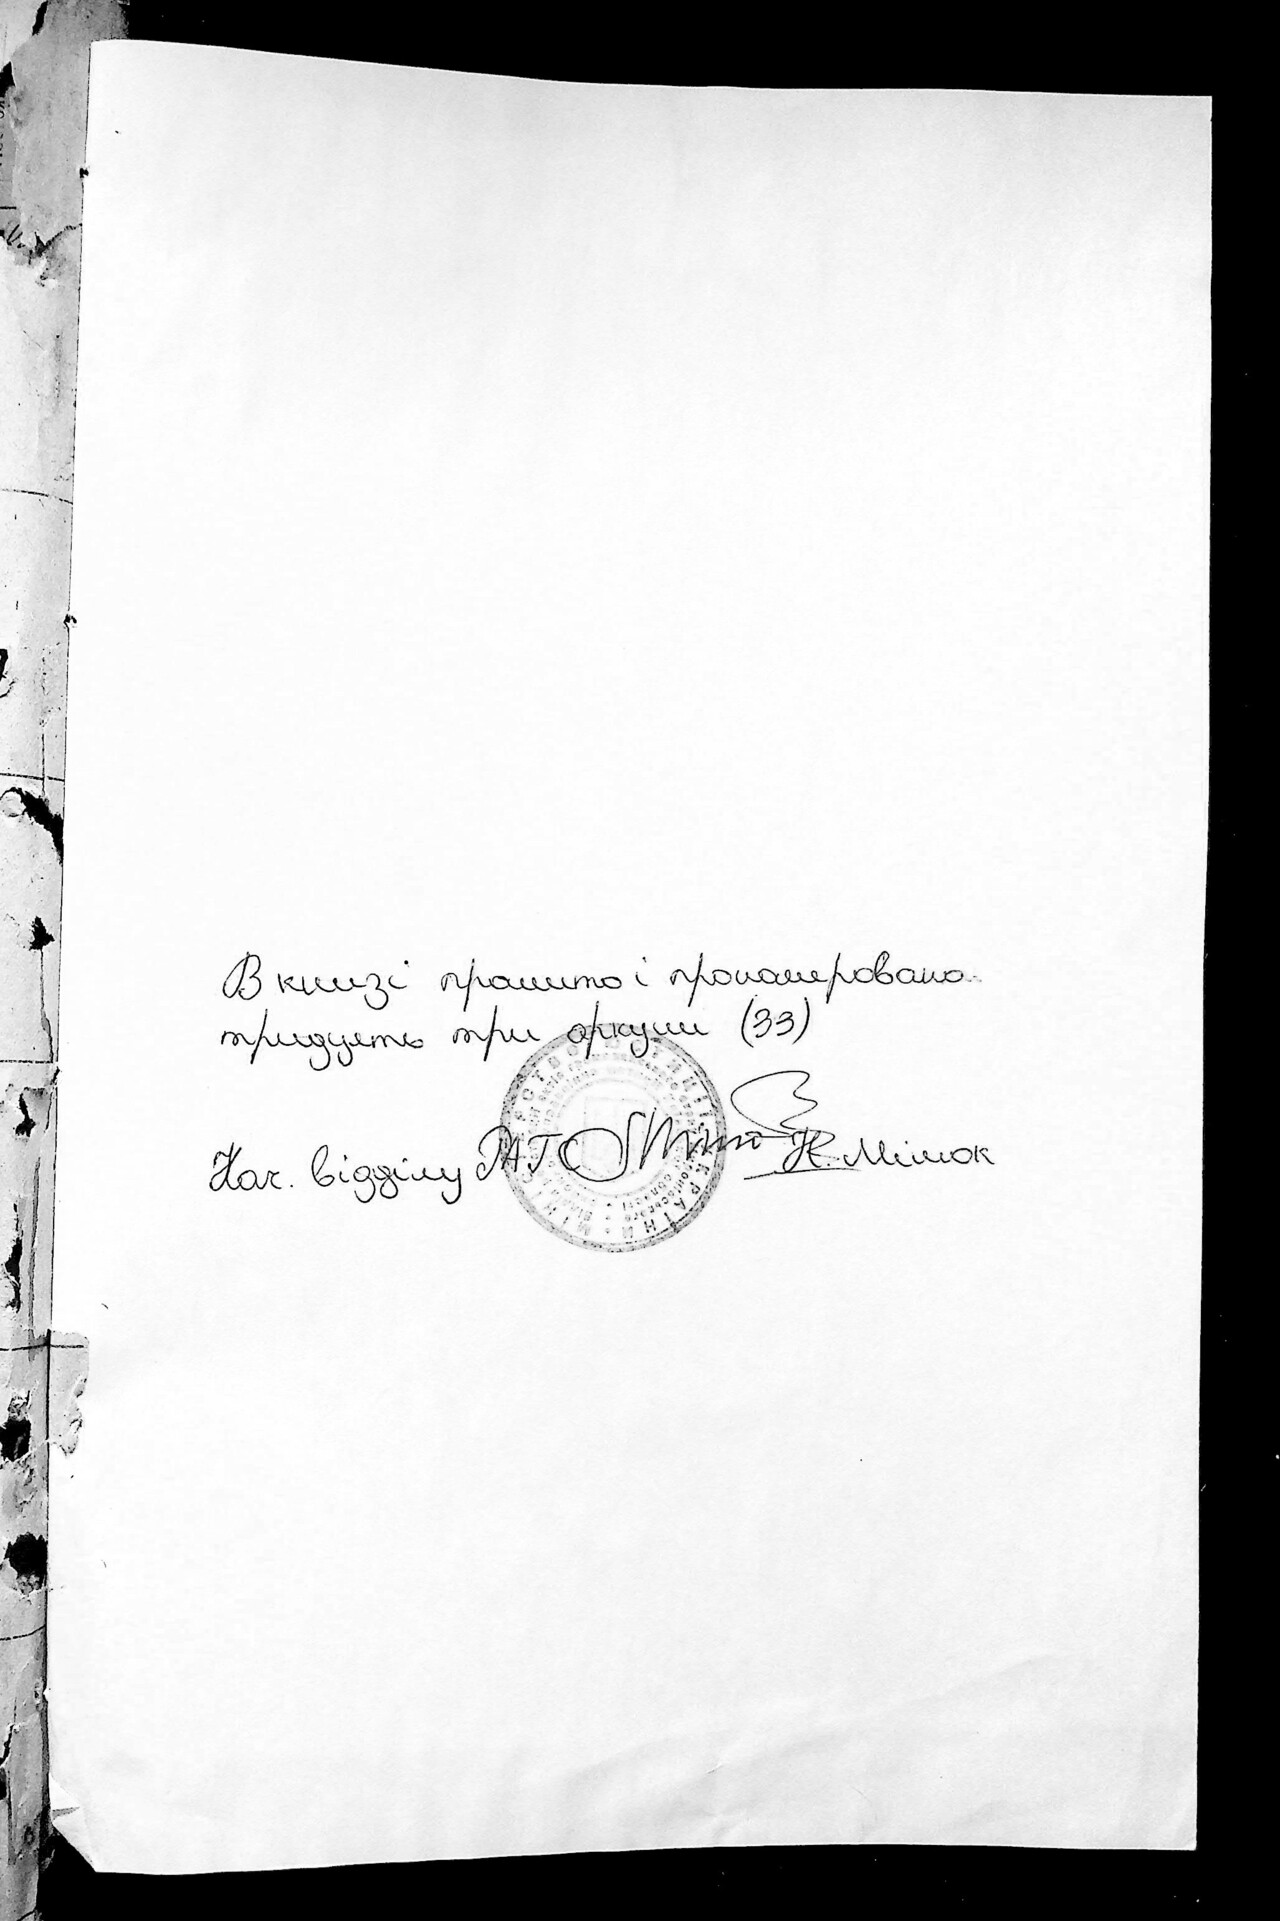 В книзі прошито і прономеровано
тридцять три аркуші (33)
Нач. відділу РАГС Н. Мілюк